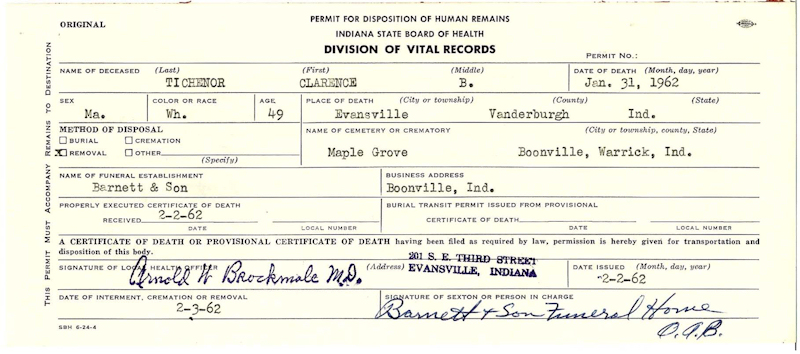 ORIGINAL
PERMIT FOR DISPOSITION OF HUMAN REMAINS
INDIANA STATE BOARD OF HEALTH
DIVISION OF VITAL RECORDS
PERMIT NO.:
THIS PERMIT MUST ACCOMPANY REMAINS TO DESTINATION
NAME OF DECEASED (Last) (First) (Middle) DATE OF DEATH (Month, day, year)
TICHENOR CLARENCE B. Jan. 31, 1962
SEX COLOR OR RACE AGE PLACE OF DEATH (City or township) (County) (State)
Ma. Wh. 49 Evansville Vanderburgh Ind.
METHOD OF DISPOSAL NAME OF CEMETERY OR CREMATORY (City or township, county, State)
BURIAL CREMATION
X REMOVAL OTHER Maple Grove Boonville, Warrick, Ind.
(Specify)
NAME OF FUNERAL ESTABLISHMENT BUSINESS ADDRESS
Barnett & Son Boonville, Ind.
PROPERLY EXECUTED CERTIFICATE OF DEATH BURIAL TRANSIT PERMIT ISSUED FROM PROVISIONAL
RECEIVED 2-2-62 CERTIFICATE OF DEATH
DATE LOCAL NUMBER DATE LOCAL NUMBER
A CERTIFICATE OF DEATH OR PROVISIONAL CERTIFICATE OF DEATH having been filed as required by law, permission is hereby given for transportation and
disposition of this body.
SIGNATURE OF LOCAL HEALTH OFFICER (Address) 201 S. E. THIRD STREET DATE ISSUED (Month, day, year)
Arnold W Brockmole M.D. EVANSVILLE, INDIANA 2-2-62
DATE OF INTERMENT, CREMATION OR REMOVAL SIGNATURE OF SEXTON OR PERSON IN CHARGE
2-3-62 Barnett + Son Funeral Home
O.A.B.
SBH 6-24-4